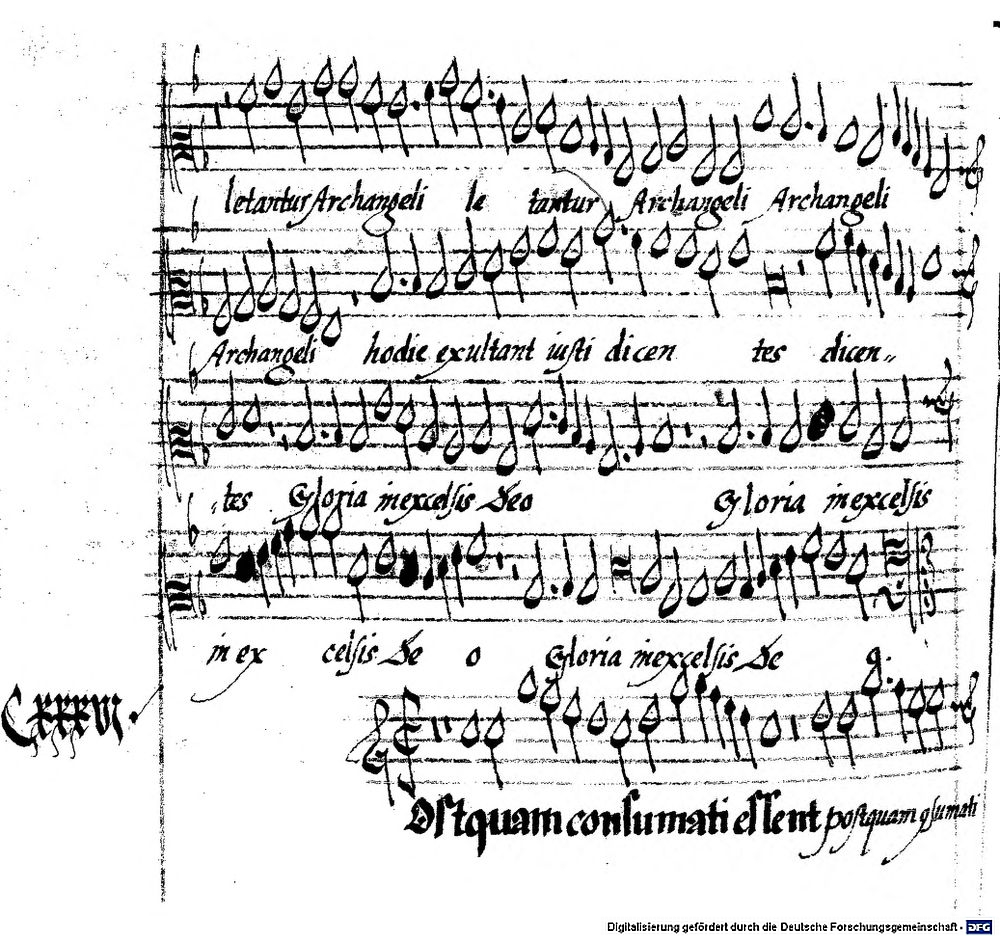 letantur Archangeli le tantur Archangeli Archangeli
Archangeli hodie exultant iusti dicen tes dicen„
„tes Gloria in excelsis Deo Gloria in excelsis
in ex celsis De o Gloria in excelsis De o.
CXXXVI.
Ostquam consumati essent postquam q̃sumati
Digitalisierung gefördert durch die Deutsche Forschungsgemeinschaft - DFG